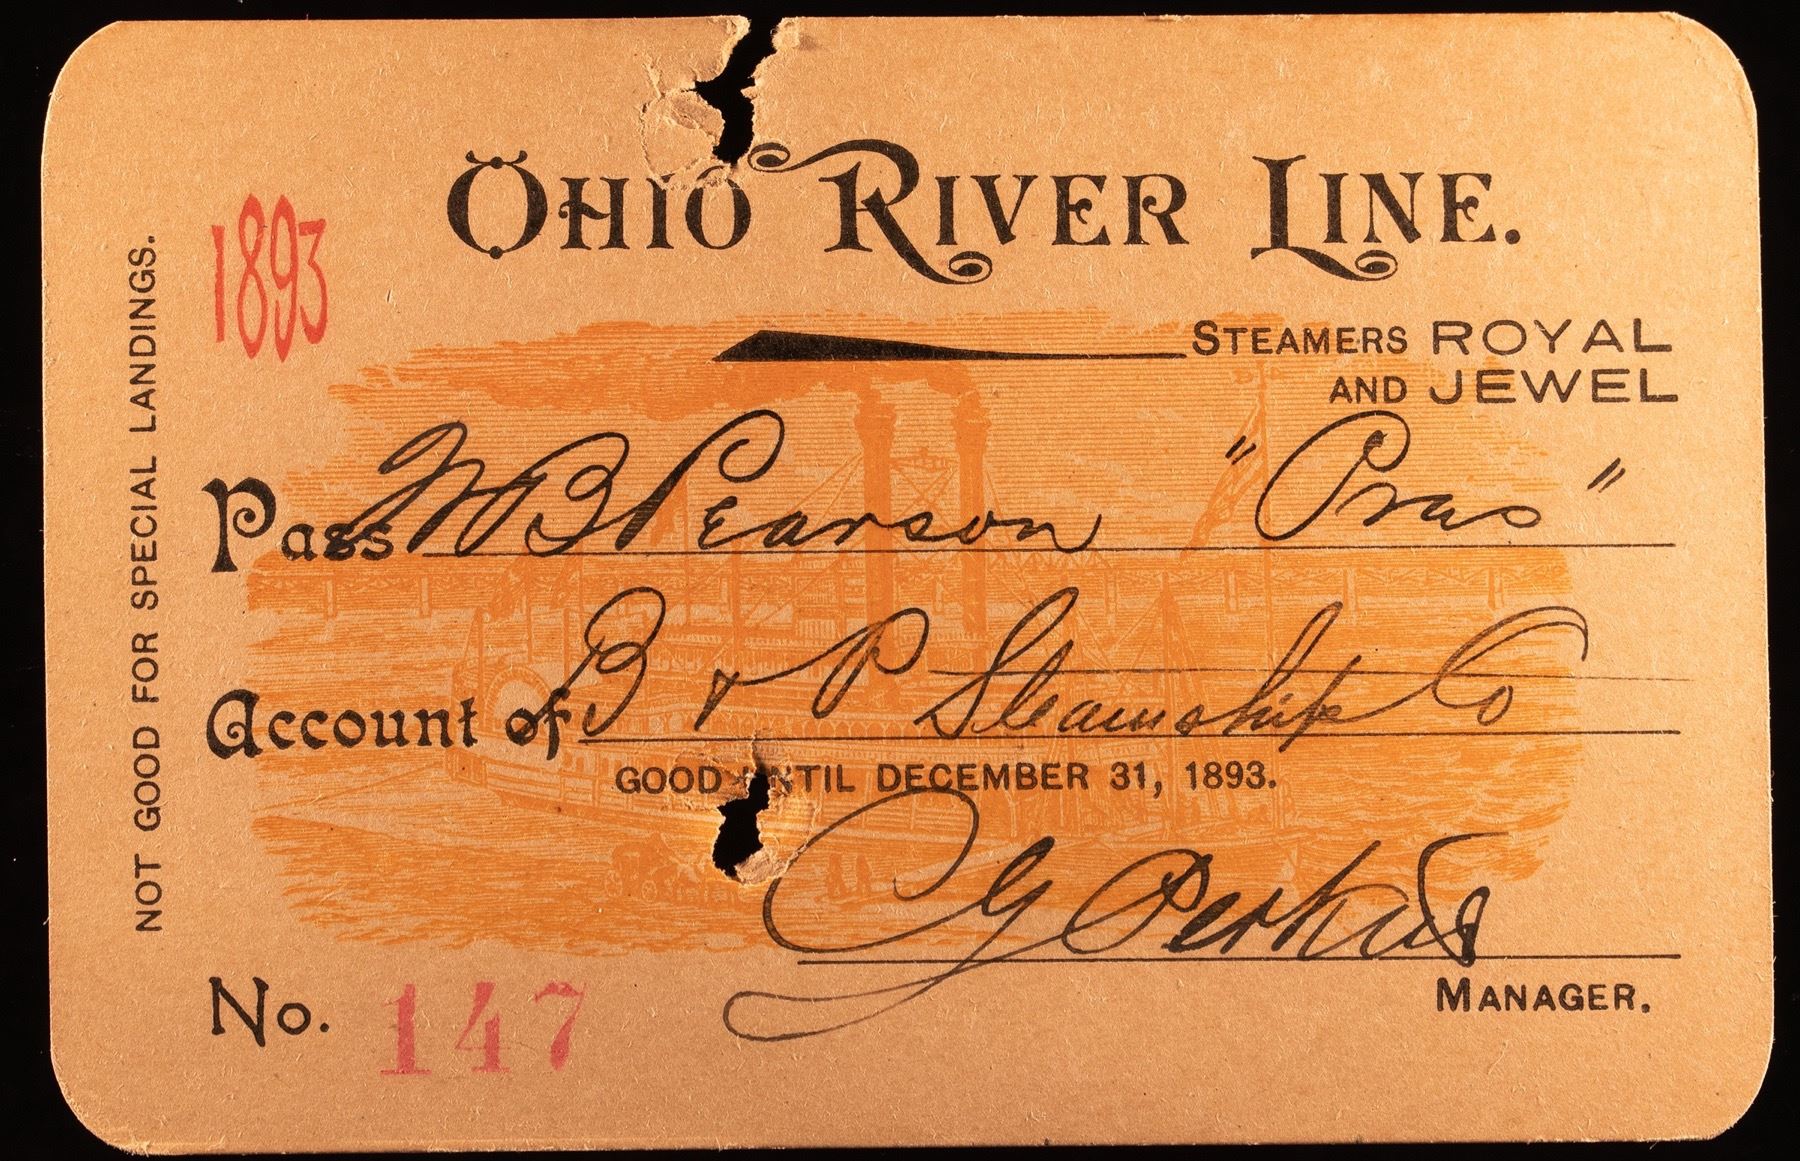 OHIO RIVER LINE.
1893
STEAMERS ROYAL
AND JEWEL
Pass W B Pearson "Pres"
Account of B & P Steamship Co
GOOD UNTIL DECEMBER 31, 1893.
C G Perkins
MANAGER.
No. 147
NOT GOOD FOR SPECIAL LANDINGS.